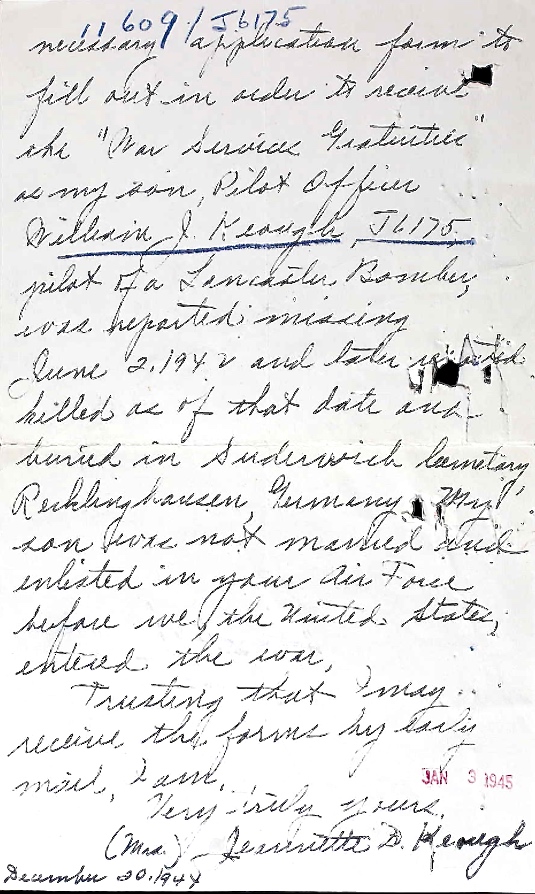 11609/J6175
necessary application form to
fill out in order to receive
the "War Services Gratuities"
as my son, Pilot Officer
William J. Keough, J6175,
pilot of a Lancaster Bomber,
was reported missing
June 2, 1942 and later
killed as of that date and
buried in Suderwich Cemetary,
Recklinghausen, Germany. My
son was not married and
enlisted in your Air Force
before we, the United States,
entered the war.
Trusting that I may
receive the forms by early
mail, I am,
JAN 3 1945
Very truly yours,
(Mrs.) Jeannette D. Keough
December 20, 1944